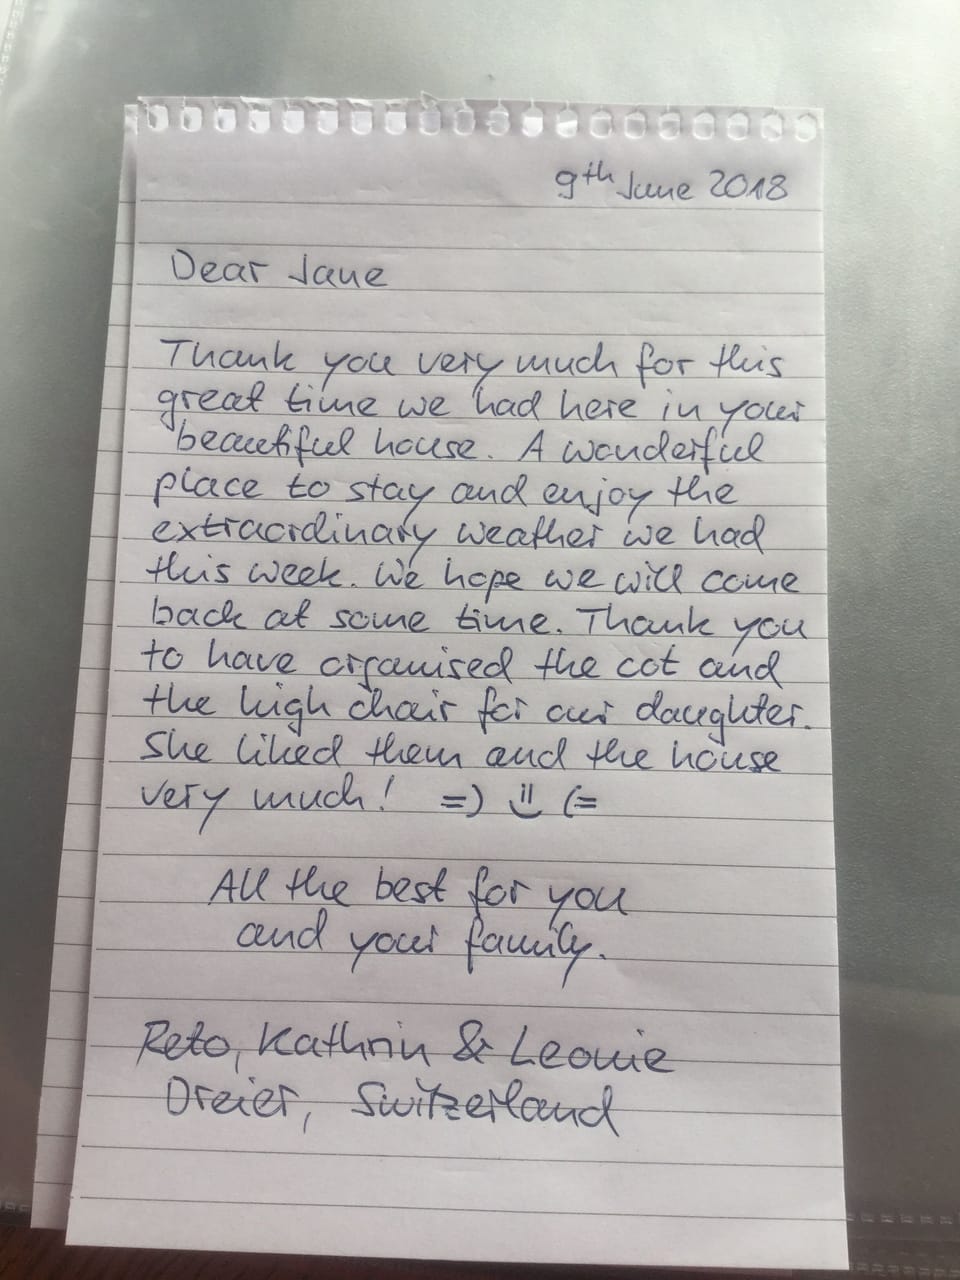 9th June 2018
Dear Jane
Thank you very much for this
great time we had here in your
beautiful house. A wonderful
place to stay and enjoy the
extraordinary weather we had
this week. We hope we will come
back at some time. Thank you
to have organised the cot and
the high chair for our daughter.
She liked them and the house
very much! =) :) (=
All the best for you
and your family.
Reto, Kathrin & Leonie
Dreier, Switzerland